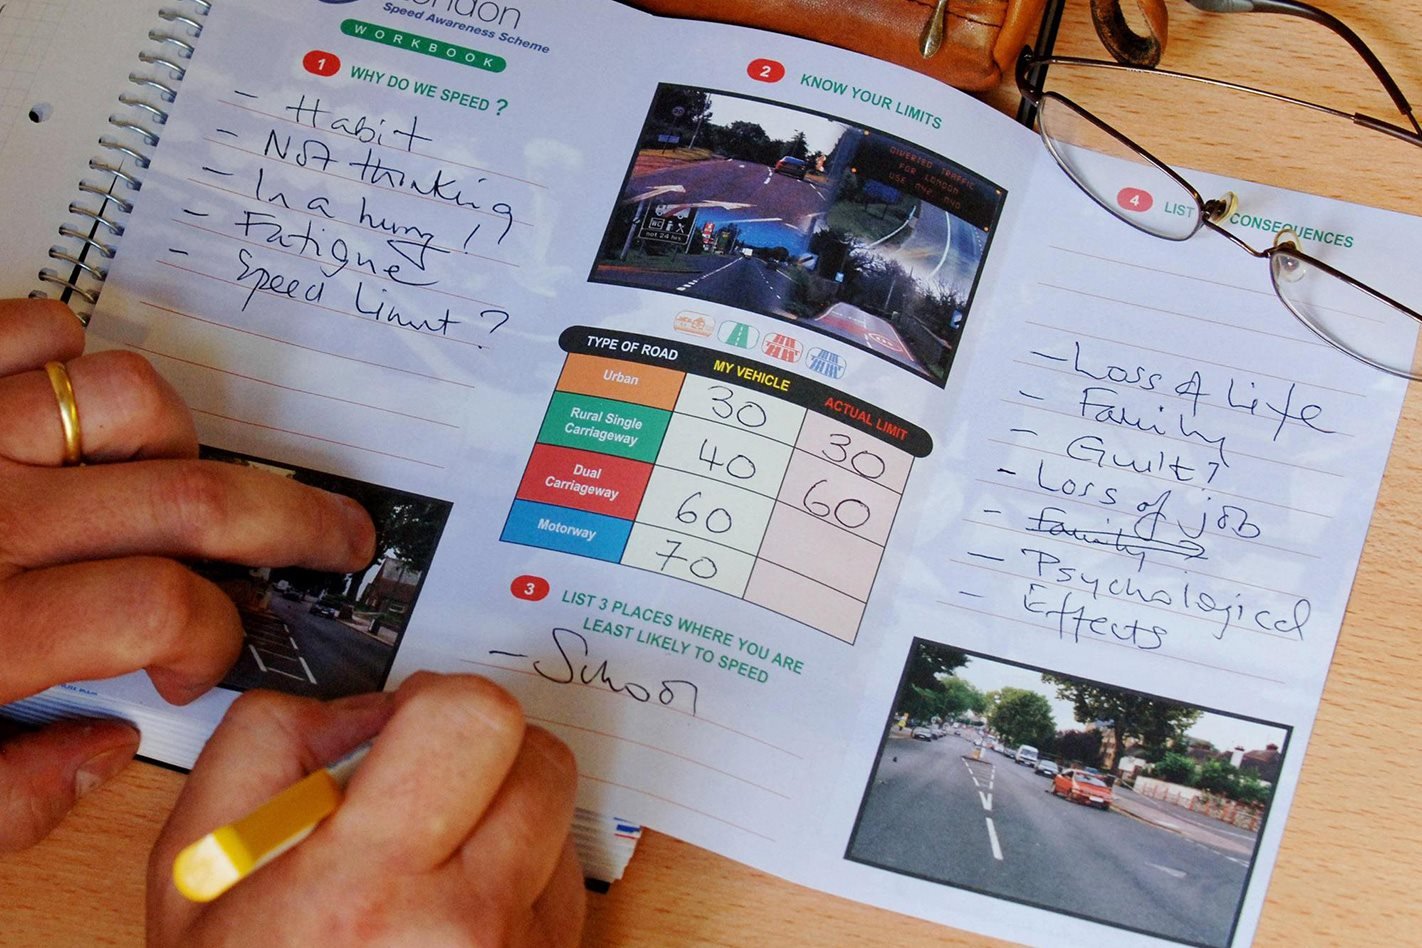 London
Speed Awareness Scheme
WORKBOOK
1 WHY DO WE SPEED?
- Habit
- Not thinking
- In a hurry!?
- Fatigue
- Speed Limit?
2 KNOW YOUR LIMITS
DIVERTED TRAFFIC
FOR LONDON
USE M42 M40
WC
not 24 hrs
TYPE OF ROAD MY VEHICLE ACTUAL LIMIT
Urban 30 30
Rural Single Carriageway 40 60
Dual Carriageway 60
Motorway 70
3 LIST 3 PLACES WHERE YOU ARE
LEAST LIKELY TO SPEED
- School
4 LIST CONSEQUENCES
- Loss of Life
- Family
- Guilt?
- Loss of job
- Family
- Psychological
- Effects